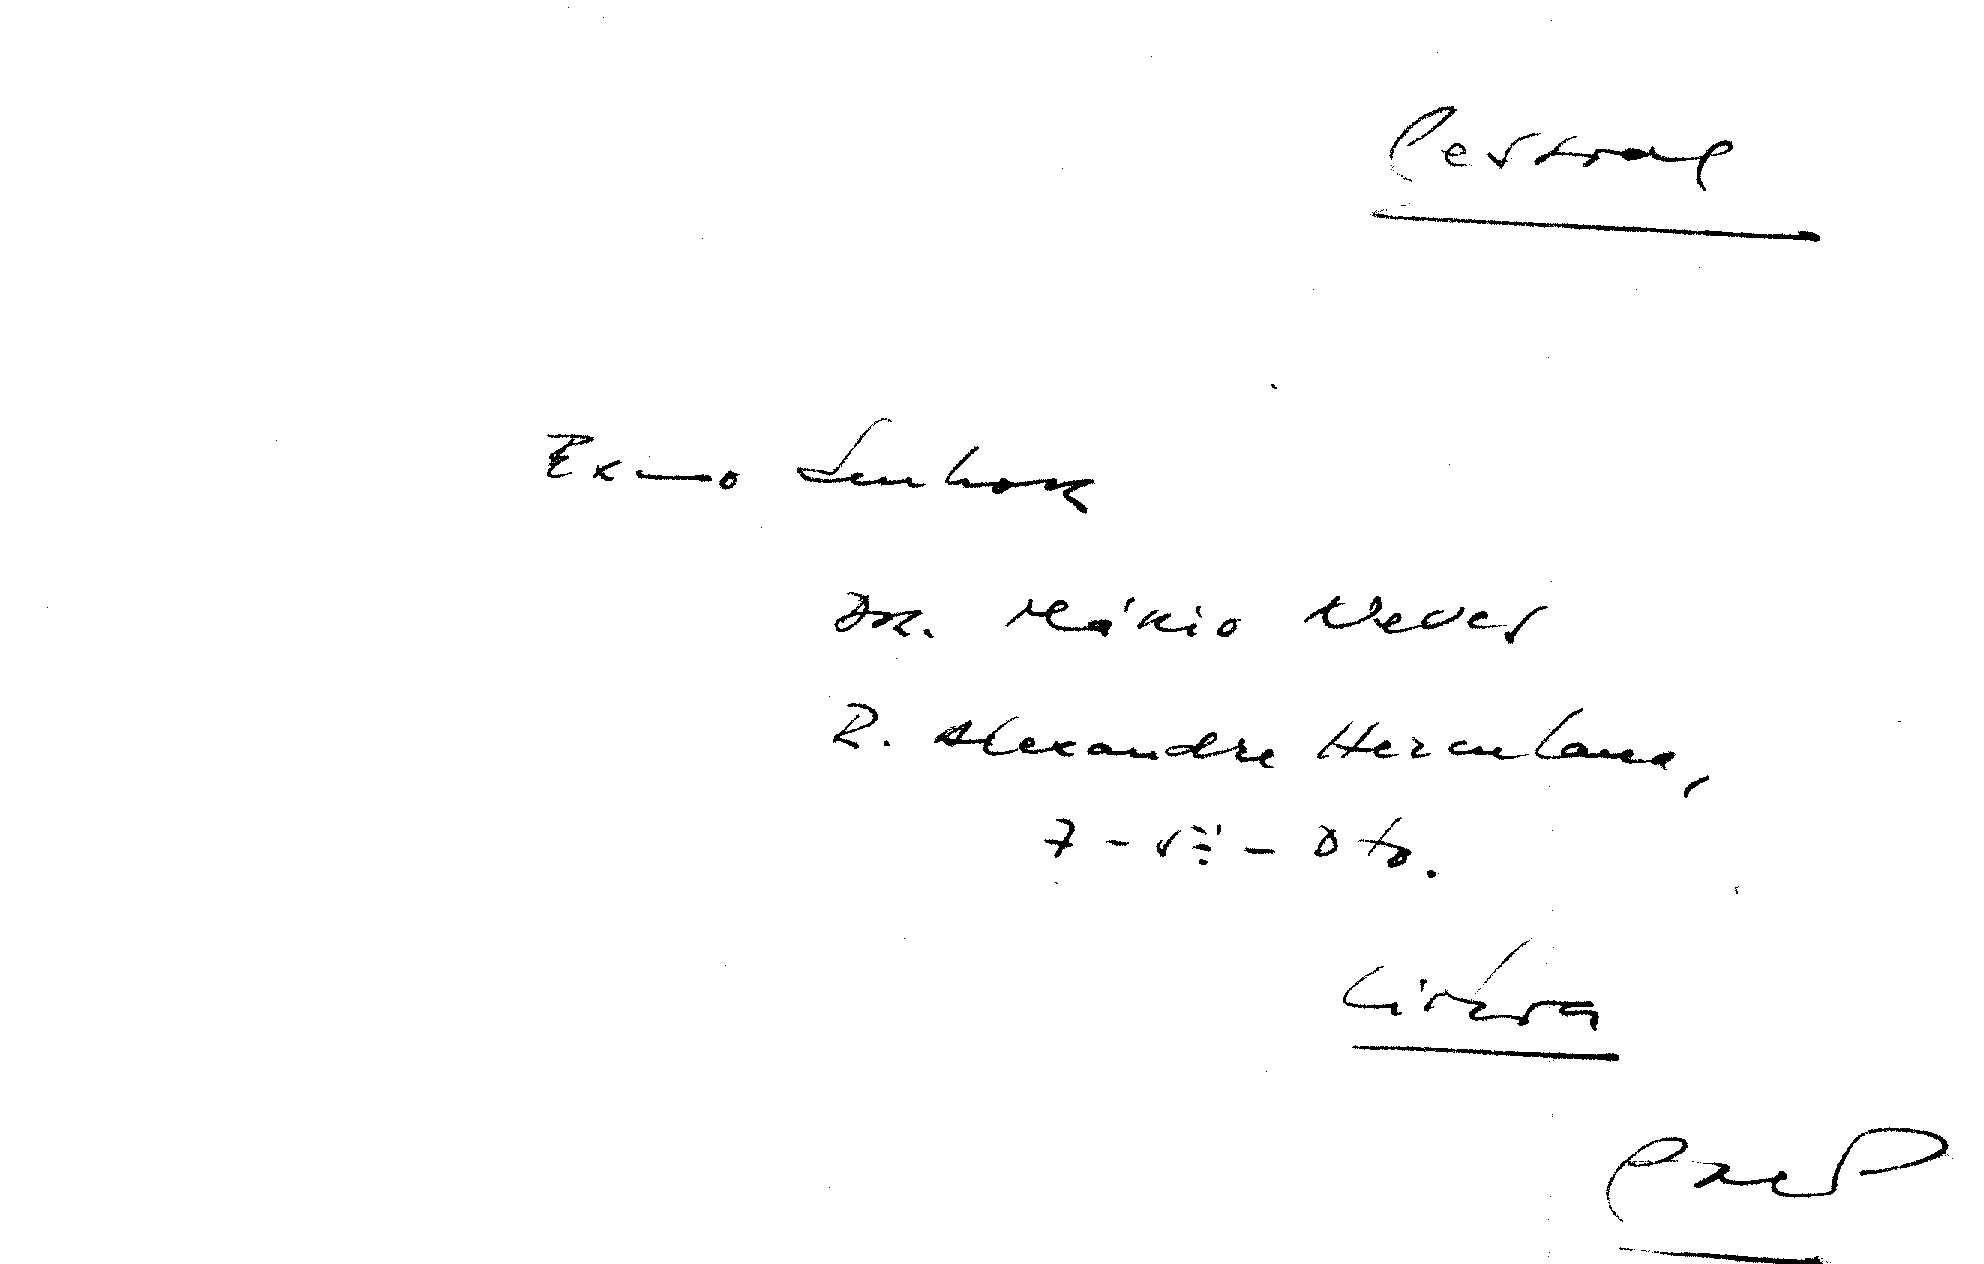 Pessoal
Exmo Senhor
Dr. Mário Neves
R. Alexandre Herculano,
7 - VII - Dto.
Lisboa